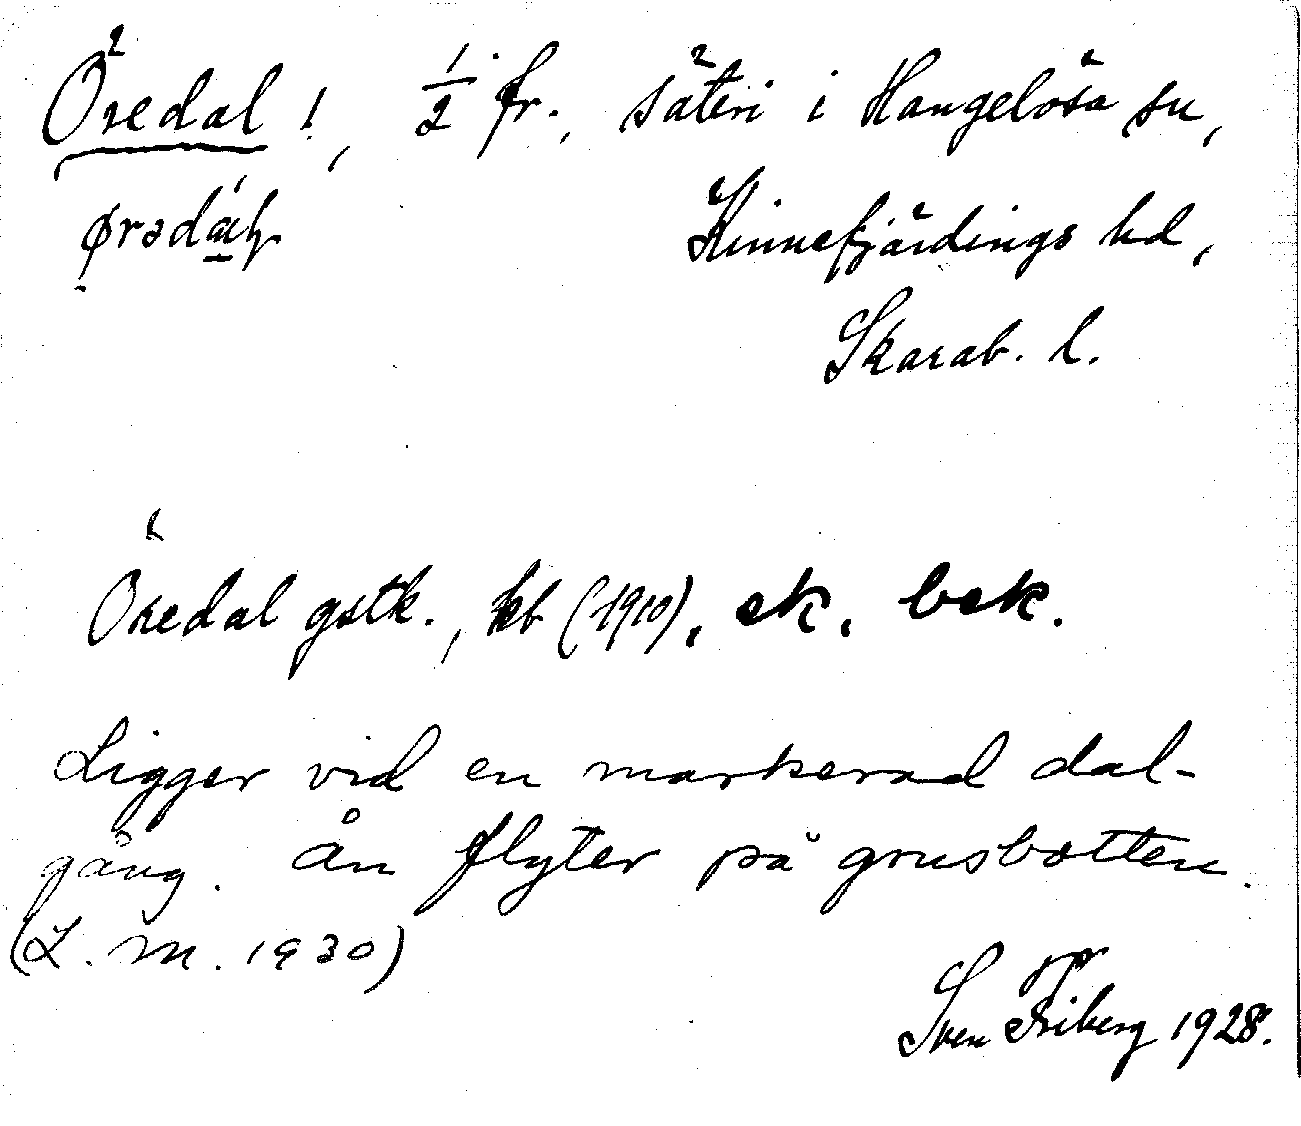 Öredal !, 1/2 fr., säteri i Hangelösa sn,
Kinnefjärdings hd,
Skarab. l.
Öredal gstk., kb (1910), ek. bek.
Ligger vid en markerad dal-
gång. Ån flyter på grusbotten.
(L. M. 1930)
Sven Friberg 1928.